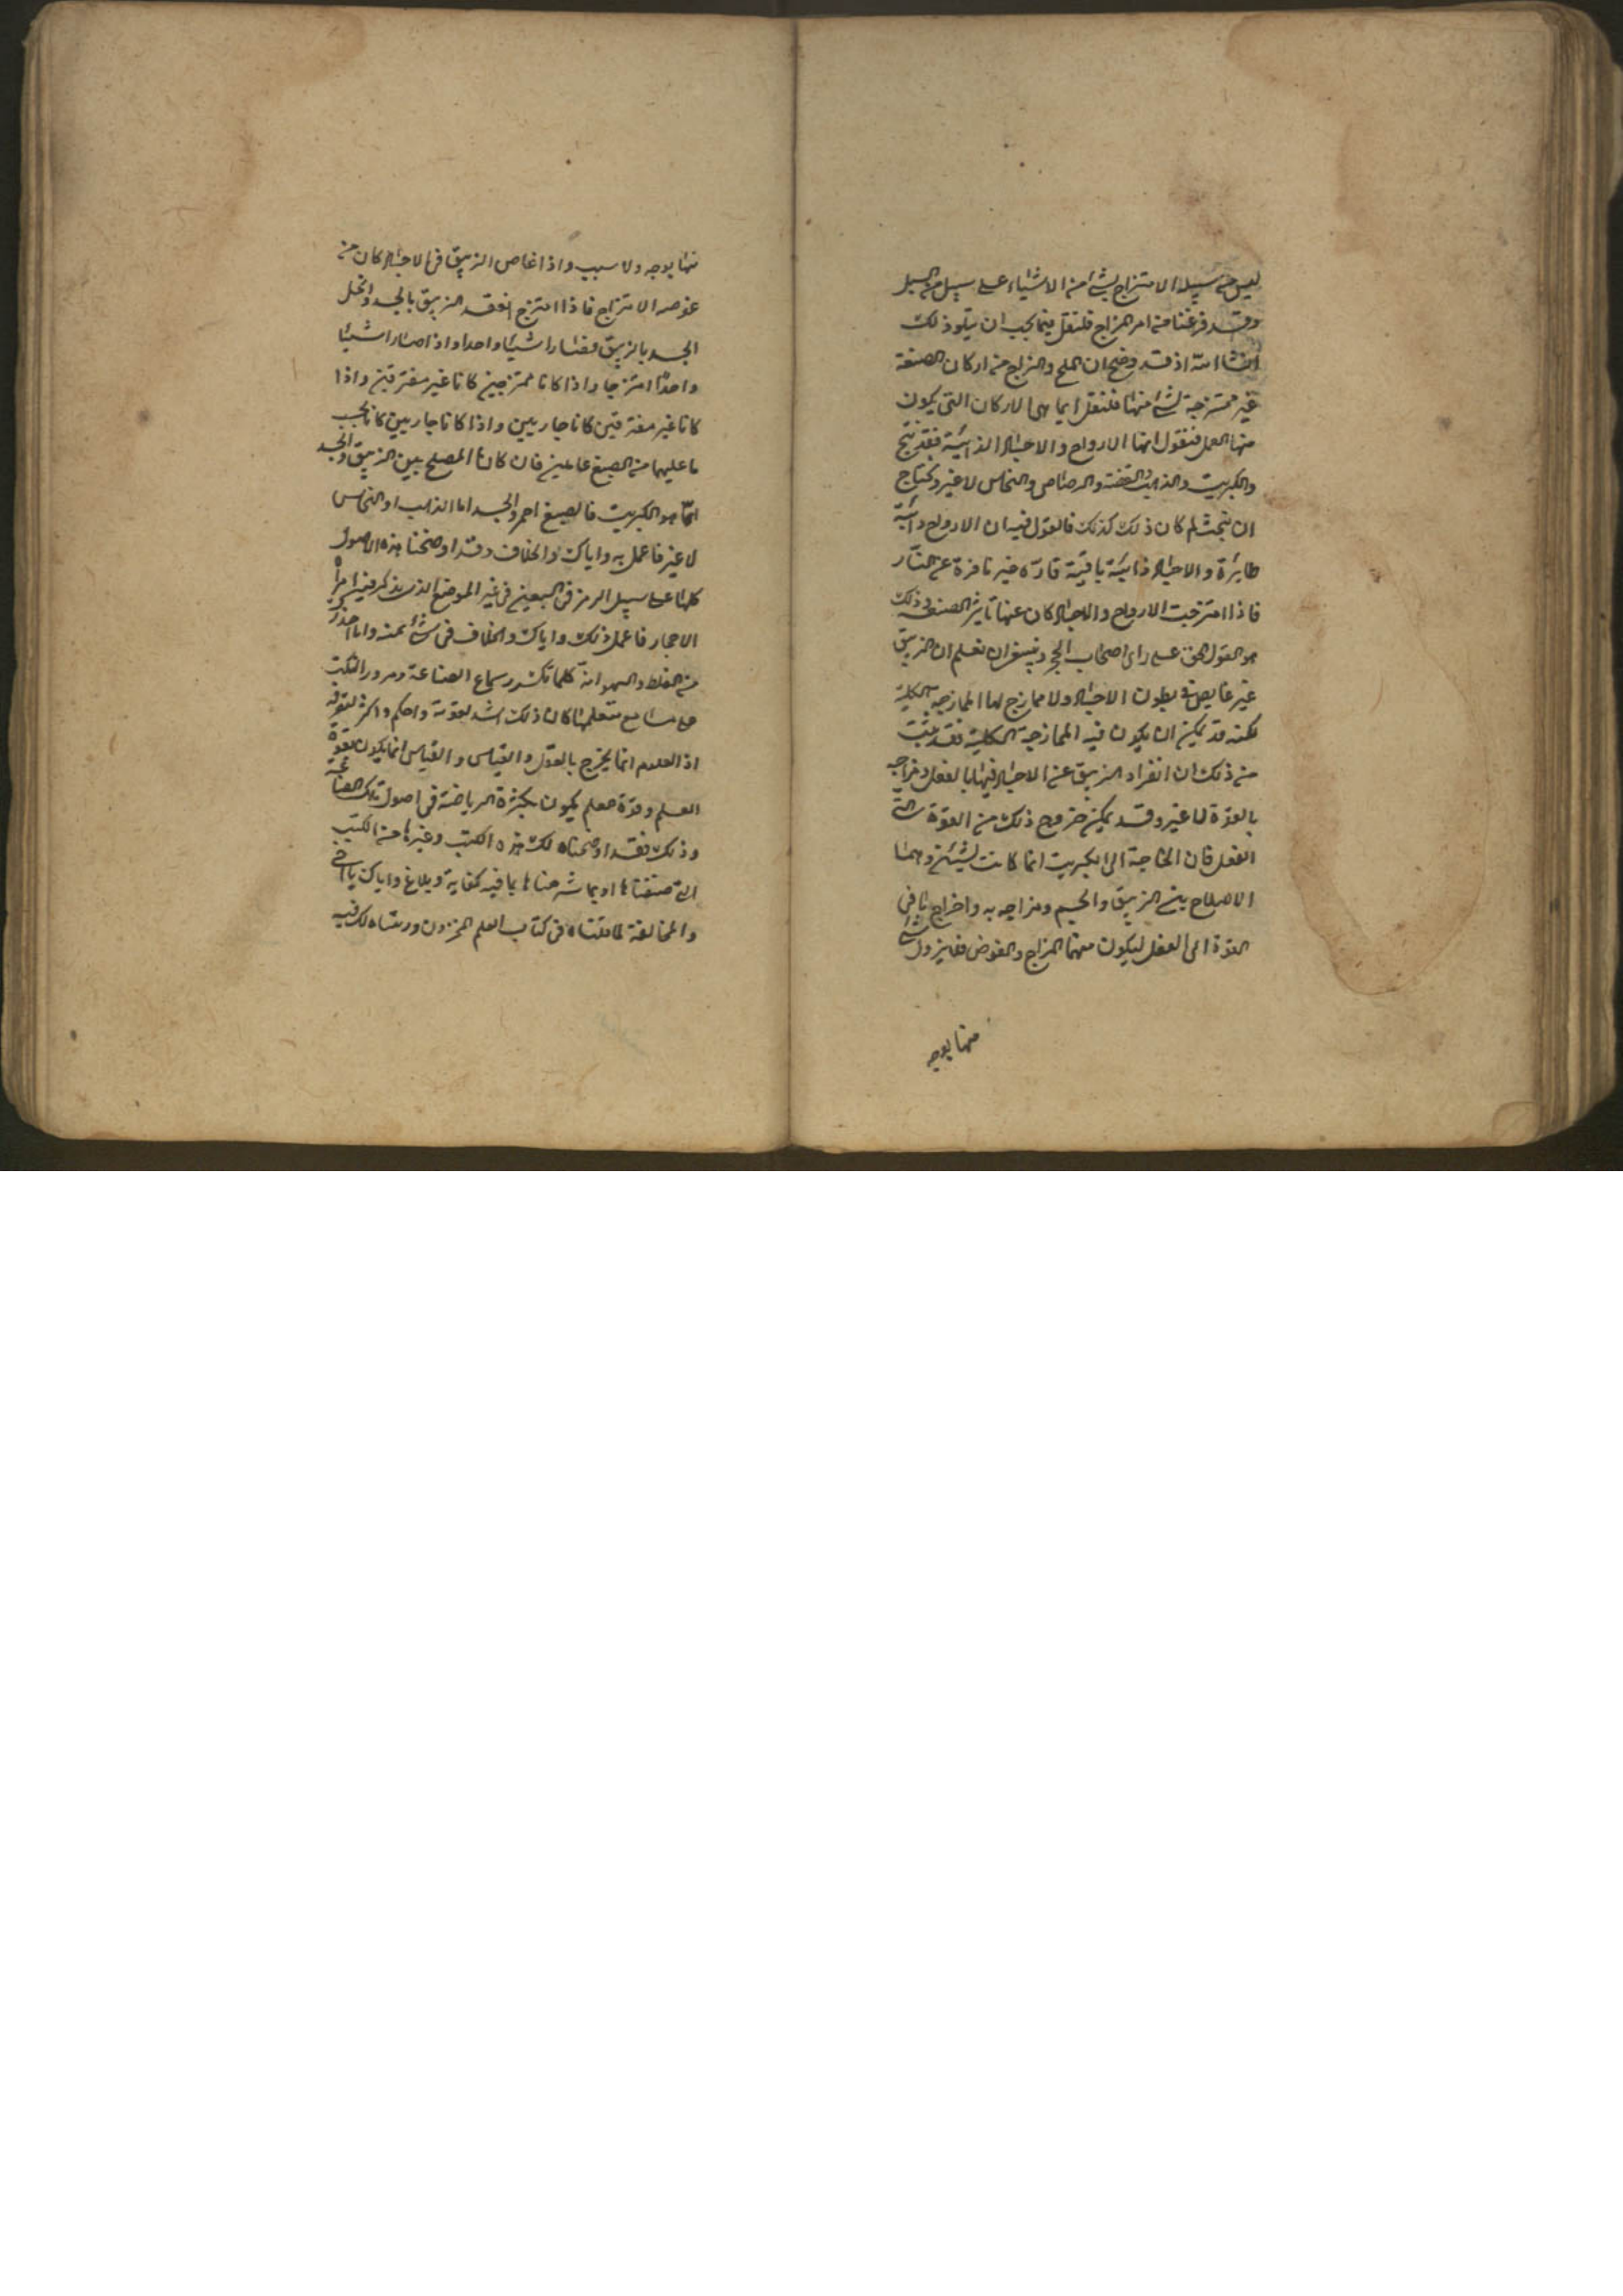 ليس من سبيله الامتزاج بشئ من الاشياء على سبيل من السبل
وقد فرغنا من امر المزاج فلنقل فيما يجب ان يتلو ذلك
انشا الله اذ قد وضح ان الملح والزاج من اركان الصنعة
غير ممتزجة بشئ منها فلنقل ايما هى الاركان التى يكون
منها العمل فنقول انها الارواح والاجساد الذائبة
والكبريت والذهب والفضة والرصاص والنحاس لا غير ويحتاج
ان يبحث لم كان ذلك كذلك فالقول فيه ان الارواح
طايرة والاجساد ذائبة باقية قارّة غير نافرة عن النار
فاذا امتزجت الارواح والاجساد كان عنها تاثير الصنعة ذلك
هو القول الحق على راى اصحاب الحجر وينبغى ان تعلم ان الزيبق
غير غايص فى بطون الاجساد ولا ممازج لها الممازجة الكلية
لكنه قد يمكن ان يكون فيه الممازجة الكلية فقد ثبت
من ذلك ان انفراد الزيبق عن الاجساد فيها بالفعل ومزاجه
بالقوة لا غير وقد يمكن خروج ذلك من القوة الى
الفعل فان الحاجة الى الكبريت انما كانت لشيئين وهما
الاصلاح بين الزيبق والجسم ومزاجه به واخراج ما فى
القوة الى الفعل ليكون منهما المزاج والغوص فغير زول
منها بوجه
منها بوجه ولا سبب واذا غاص الزيبق فى الاجساد كان من
غوصه الامتزاج فاذا امتزج انعقد الزيبق بالجسد وانحل
الجسد بالزيبق فصارا شيئا واحدا واذا صارا شيئا
واحدًا امتزجا واذا كانا ممتزجين كانا غير مفترقين واذا
كانا غير مفترقين كانا جاريين واذا كانا جاريين كانا بحسب
ما عليهما من الصبغ عاملين فان كان المصلح بين الزيبق والجسد
انّما هو الكبريت فالصبغ احمر والجسد اما الذهب او النحاس
لا غير فاعمل به واياك والخلاف وقد اوضحنا هذه الاصول
كلها على سبيل الرمز فى السبعين فى غير الموضع الذى يذكر فيه
الاحجار فاعمل ذلك واياك والخلاف فى شئ منه وانا احذرك
من الغلط والسهو انه كلما تكرر سماع الصناعة ومرور الكتب
على مسامع متعلمها كان ذلك اشد لقوته واحكم واكثر
اذ العلوم انما يخرج بالقول والقياس والقياس انما يكون بقوة
العلم وقوة العلم يكون بكثرة الرياضة فى اصول تلك الصناعة
وذلك فقد اوضحناه لك هذه الكتب وغيرها من الكتب
التى صنفناها او بما شرحناها بما فيه كفاية وبلاغ واياك يا اخى
والمخالفة لما قلناه فى كتاب العلم المخزون ورسمناه لك فيه